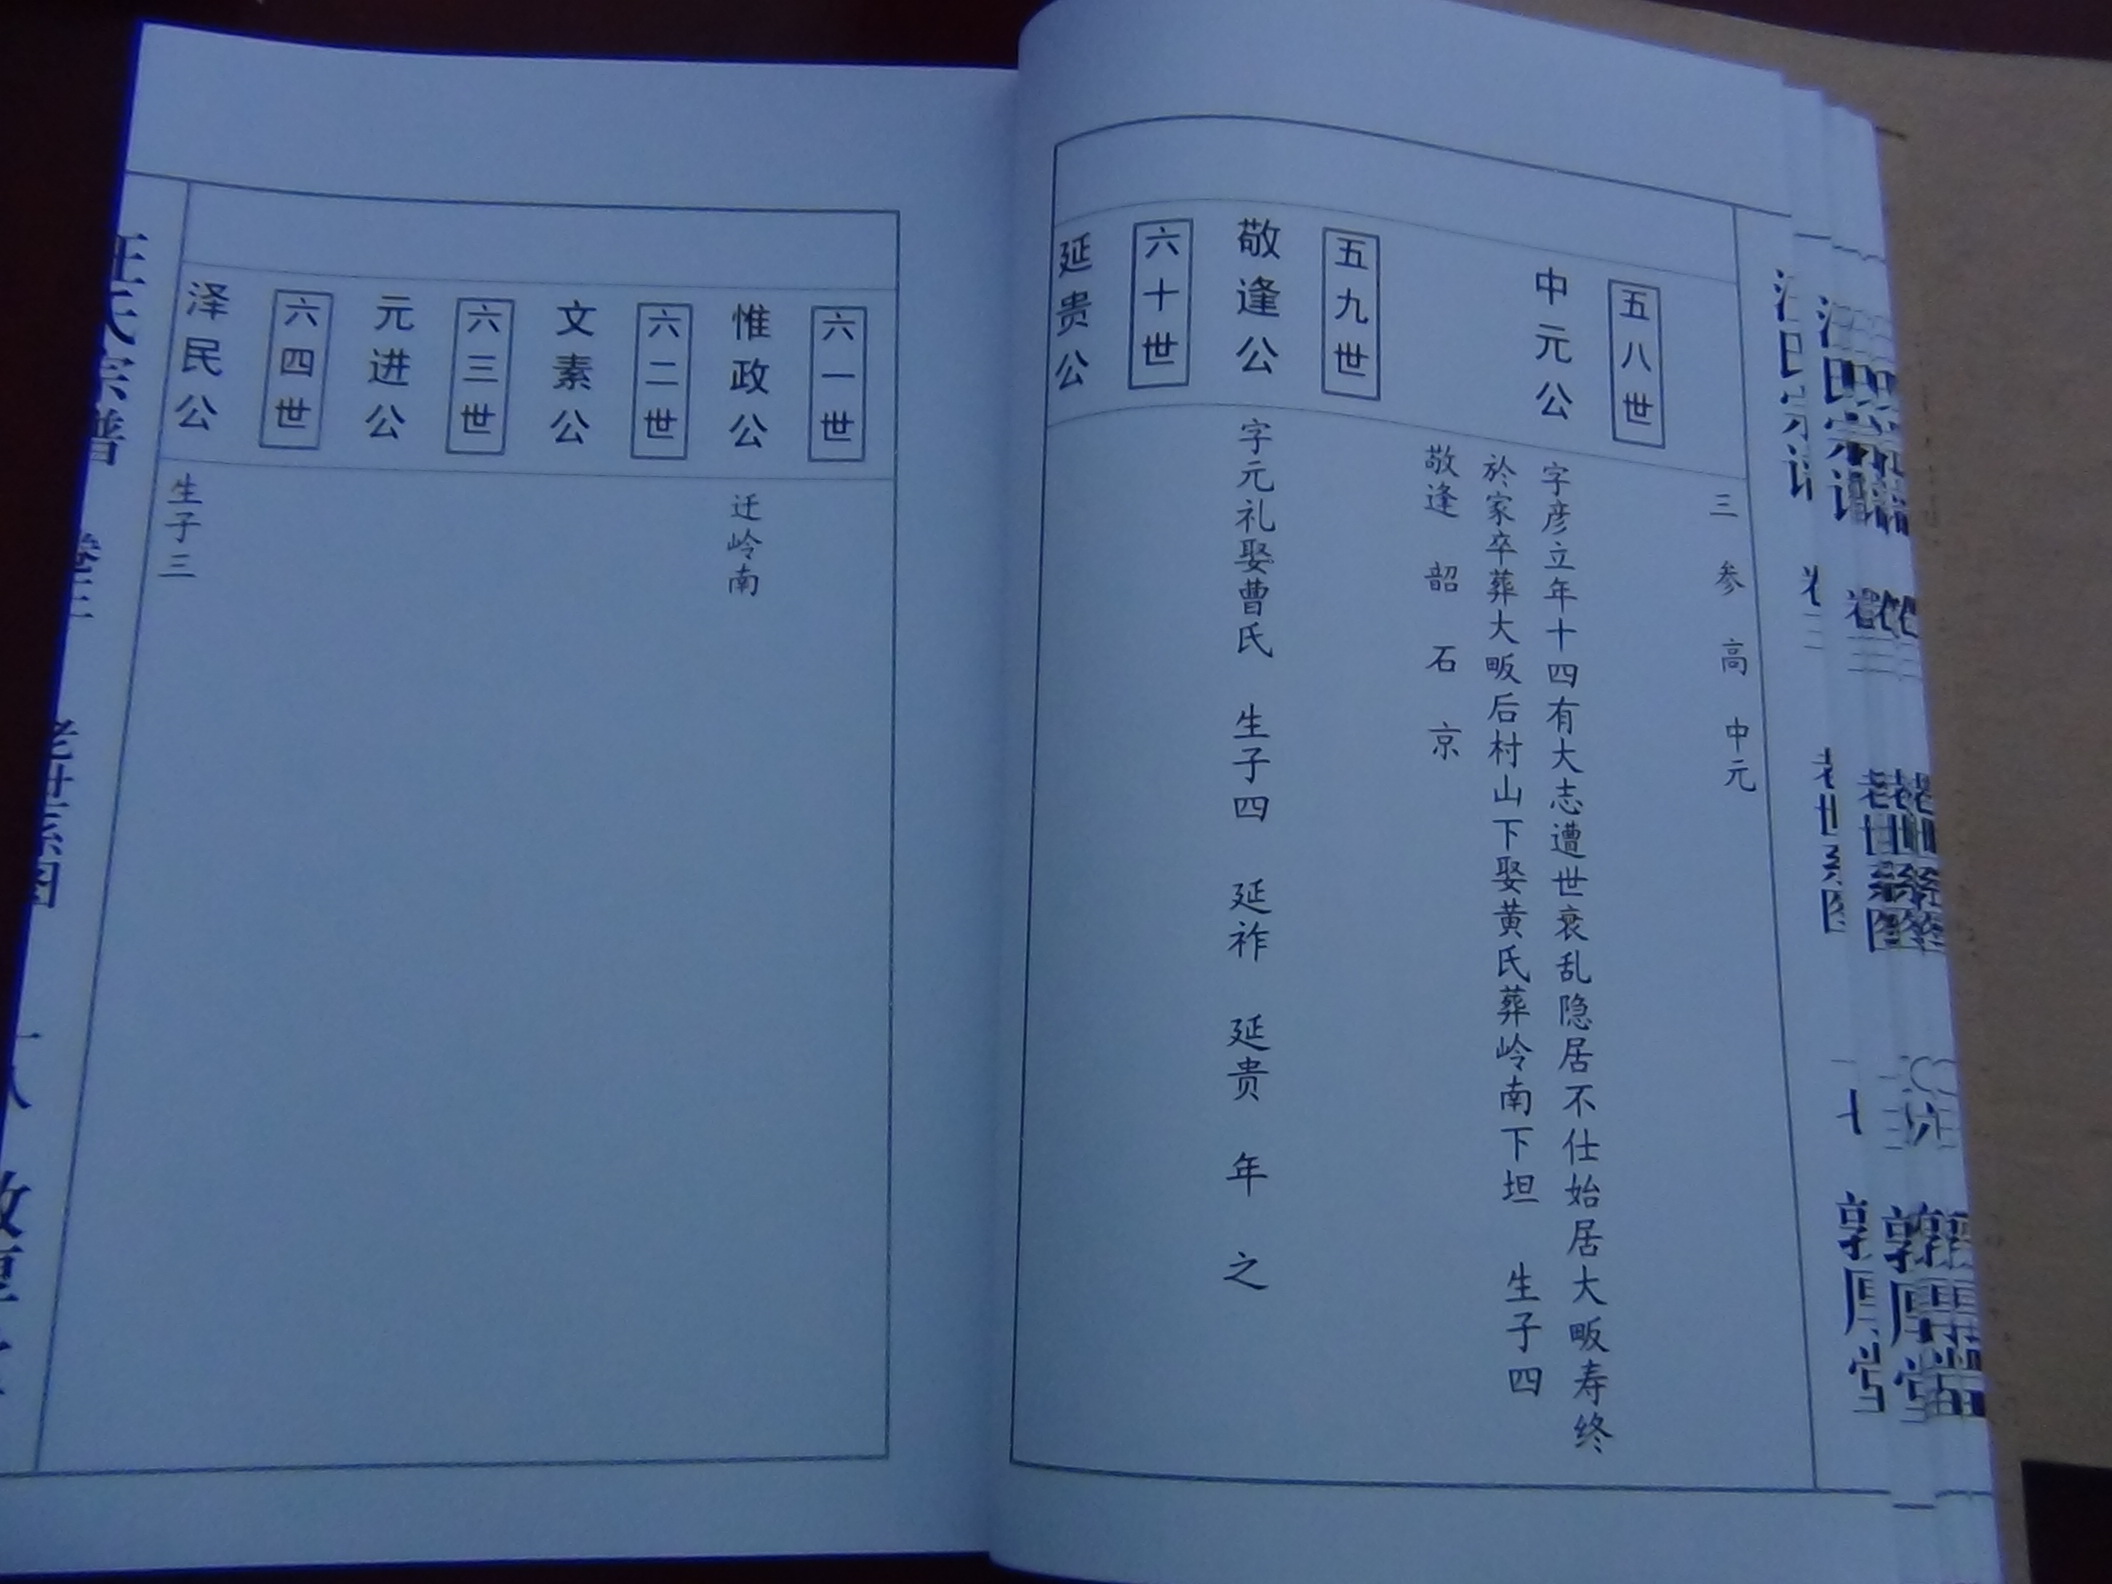 三 参 高 中元
五八世
中元公
字彦立年十四有大志遭世衰乱隐居不仕始居大畈寿终
於家卒葬大畈后村山下娶黄氏葬岭南下坦 生子四
敬逢 韶 石 京
五九世
敬逢公
字元礼娶曹氏 生子四 延祚 延贵 年 之
六十世
延贵公
六一世
惟政公
迁岭南
六二世
文素公
六三世
元进公
六四世
泽民公
生子三
汪氏宗谱 卷三 老世系图 十八